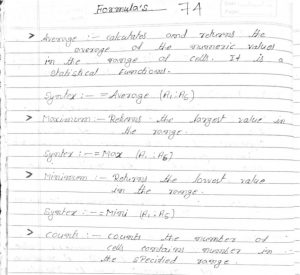 Formula's 74
> Average :- calculates and returns the
average of the numeric values
in the range of cells. It is a
statistical functions.
Syntex :- =Average (A1:A5)
> Maximum :- Returns the largest value in
the range.
Syntex :- =Max (A1:A5)
> Minimum :- Returns the lowest value
in the range.
Syntex :- =Mini (A1:A5)
> Counts :- counts the number of
cells contains number in
the specified range